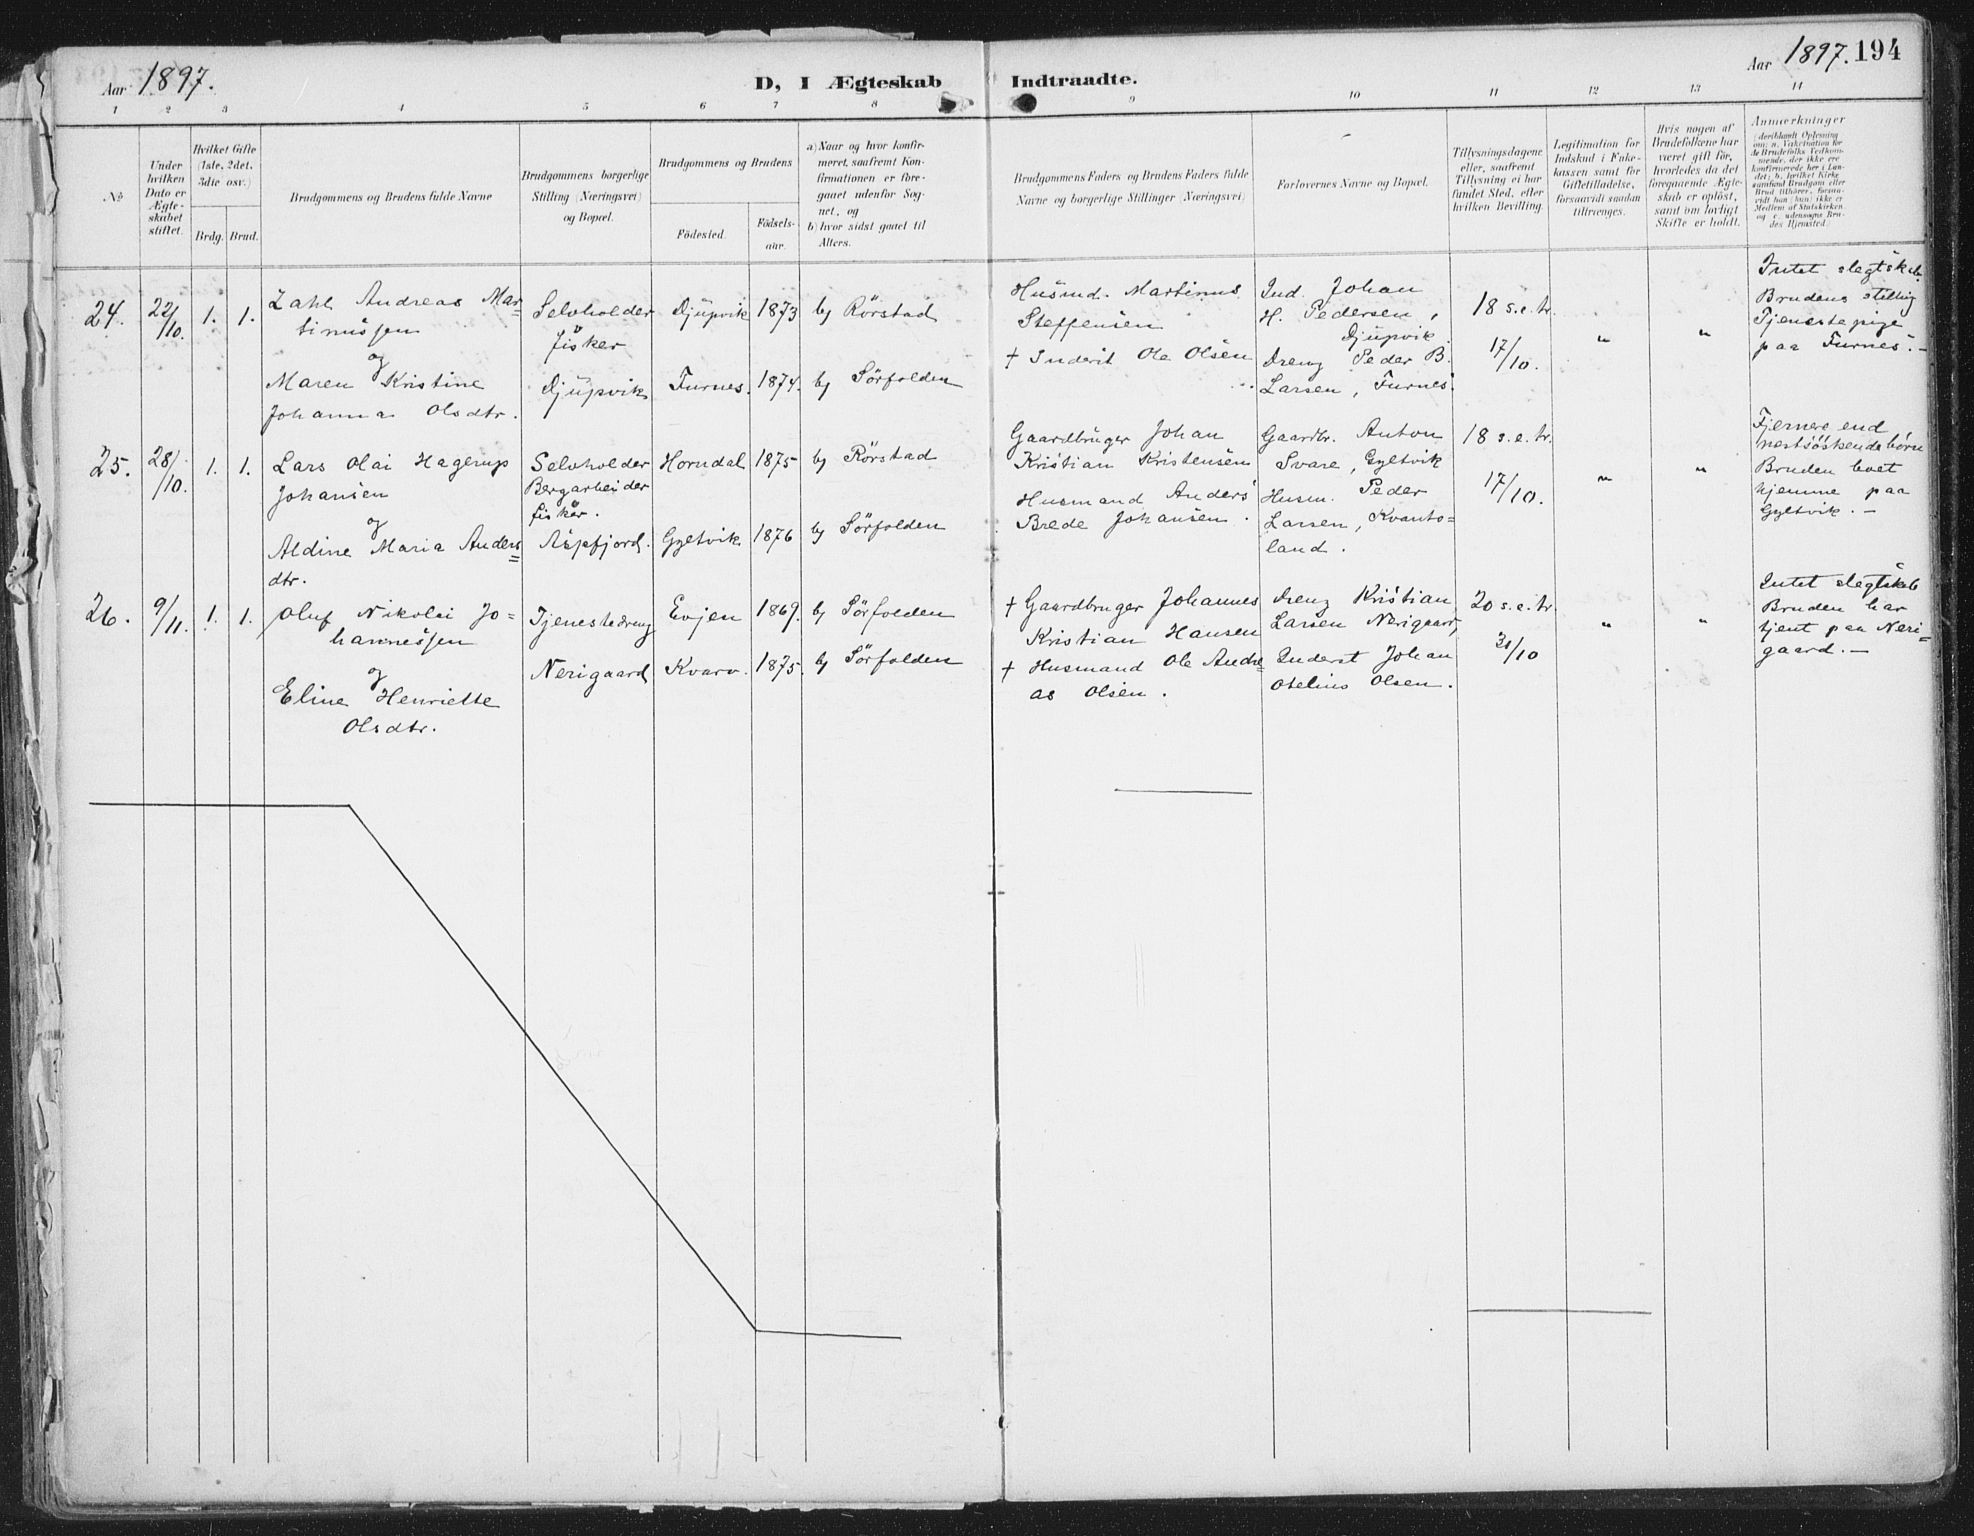 Aar 1897.
D, I Ægteskab Indtraadte.
Aar 1897. 194
1 2 3 4 5 6 7 8 9 10 11 12 13 14
No
Under hvilken Dato er Ægte-skabet stiftet.
Hvilket Gifte (1ste, 2det, 3die osv.)
Brdg. Brud.
Brudgommens og Brudens fulde Navne
Brudgommens borgerlige Stilling (Næringsvei) og Bopæl.
Brudgommens og Brudens
Födested. Födsels-aar.
a) Naar og hvor konfir-
meret, saafremt Kon-
firmationen er fore-
gaaet udenfor Sog-
net, og
b) hvor sidst gaaet til
Alters.
Brudgommens Faders og Brudens Faders fulde
Navne og borgerlige Stillinger (Næringsvei)
Forlovernes Navne og Bopæl.
Tillysningsdagene
eller, saafremt
Tillysning ei har
fundet Sted, efter
hvilken Bevilling.
Legitimation for
Indskud i Enke-
kassen samt for
Giftetilladelse,
forsaavidt saadan
tiltrænges.
Hvis nogen af
Brudefolkene har
været gift før,
hvorledes da det
foregaaende Ægte-
skab er oplöst,
samt om lovligt
Skifte er holdt.
Anmærkninger
(deriblandt Oplysning
om: a. Vakcination for
de Brudefolks Vedkom-
mende, der ikke ere
konfirmerede her i Lan-
det; b. hvilket Kirke-
samfund Brudgom eller
Brud tilhører, forsaa-
vidt han (hun) ikke er
Medlem af Statskirken,
og c. udensogns Bru-
des Hjemsted.)
24. 22/10. 1. 1.
Zahl Andreas Mar-
tinussen
og
Maren Kristine
Johanna Olsdtr.
Selvholder
fisker
Djupvik
Djupvik 1873 b) Rörstad
Furnes. 1874. b) Sörfolden
Husmd. Martinus
Steffensen
+ Inderst Ole Olsen
Ind. Johan
H. Pedersen,
Djupvik.
Dreng Peder B.
Larsen, Furnes
18 s.e. tr.
17/10.
" "
Intet slegtskab.
Brudens stilling
Tjenestepige
paa Furnes. -
25. 28/10. 1. 1.
Lars Olai Hagerup
Johansen
og
Aldine Maria Anders
dtr.
Selvholder
Bergarbeider
fisker.
Aspfjord.
Horndal 1875 b) Rörstad
Gyltvik 1876 b) Sörfolden
Gaardbruger Johan
Kristian Kristensen
Husmand Anders
Brede Johansen.
Gaardbr. Anton
Svare, Gyltvik
Husm. Peder
Larsen, Kvanto=
land.
18 s.e. tr.
17/10.
" "
Fjernere end
nestsöskendebörn
Bruden boet
hjemme paa
Gyltvik. -
26. 9/11. 1. 1.
Oluf Nikolai Jo=
hannessen
og
Eline Henriette
Olsdtr.
Tjenestedreng
Nerigaard
Evjen 1869. b) Sörfolden
Kvarv. 1875. b) Sörfolden
+ Gaardbruger Johannes
Kristian Hansen
+ Husmand Ole Andre=
as Olsen.
Dreng Kristian
Larsen Nerigaard,
Inderst Johan
Otelius Olsen.
20 s.e. tr.
31/10
" "
Intet slegtskab
Bruden har
tjent paa Neri=
gaard. -